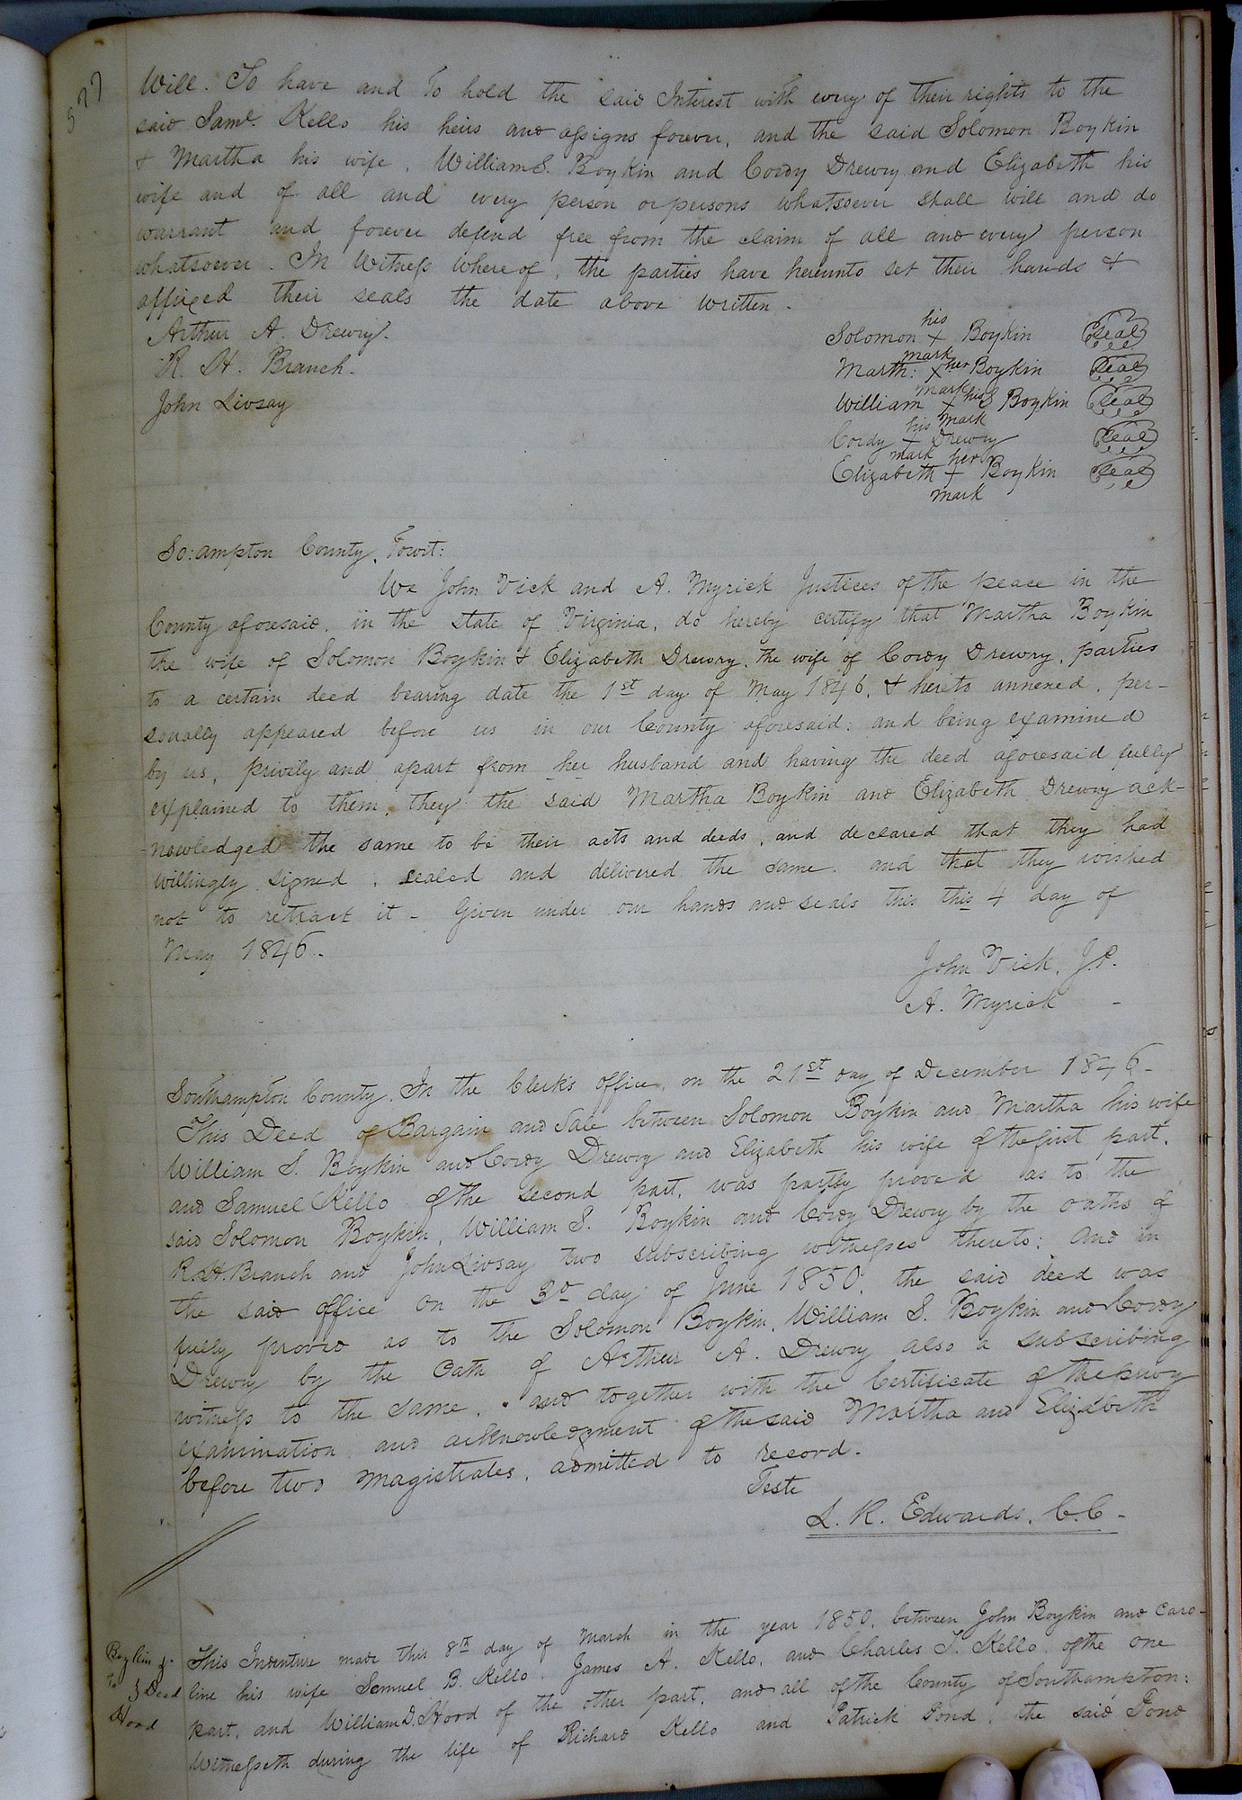 577
Will. To have and to hold the said Interest with every of their rights to the
said Saml. Kello his heirs and assigns forever, and the said Solomon Boykin
& Martha his wife, William S. Boykin and Cordy Drewry and Elizabeth his
wife and of all and every person or persons whatsoever shall will and do
warrant and forever defend free from the claim of all and every person
whatsoever. In Witness whereof, the parties have hereunto set their hands &
affixed their seals the date above written.
Arthur A. Drewry.
R. H. Branch.
John Livsay
Solomon his x mark Boykin Seal
Marth: her x mark Boykin Seal
William his x mark S Boykin Seal
Cordy his x mark Drewry Seal
Elizabeth her x mark Boykin Seal
So:ampton County, Towit:
We John Vick and A. Myrick Justices of the peace in the
County aforesaid, in the state of Virginia, do hereby certify that Martha Boykin
the wife of Solomon Boykin & Elizabeth Drewry, the wife of Cordy Drewry, parties
to a certain deed bearing date the 1st day of May 1846, & hereto annexed, per-
sonally appeared before us in our County aforesaid; and being examined
by us, privily and apart from her husband and having the deed aforesaid fully
explained to them, they the said Martha Boykin and Elizabeth Drewry ack-
nowledged the same to be their acts and deeds, and declared that they had
willingly signed, sealed and delivered the same, and that they wished
not to retract it - Given under our hands and seals this this 4 day of
May 1846.
John Vick, J.P.
A. Myrick -
Southampton County. In the Clerk's office, on the 21st day of December 1846-
This Deed of Bargain and Sale between Solomon Boykin and Martha his wife
William S. Boykin and Cordy Drewry and Elizabeth his wife of the first part,
and Samuel Kello of the second part, was partly proved as to the
said Solomon Boykin, William S. Boykin and Cordy Drewry by the oaths of
R. H. Branch and John Livsay two subscribing witnesses thereto; And in
the said office on the 3d day of June 1850, the said deed was
fully proved as to the Solomon Boykin, William S. Boykin and Cordy
Drewry by the Oath of Arthur A. Drewry also a subscribing
witness to the same, and together with the Certificate of the privy
examination and acknowledgment of the said Martha and Elizabeth
before two magistrates, admitted to record.
Teste
L. R. Edwards, C.C.
Boykin &
To } Deed
Hood
This Indenture made this 8th day of March in the year 1850, between John Boykin and Caro-
line his wife Samuel B. Kello, James A. Kello, and Charles T. Kello, of the one
part, and William D. Hood of the other part, and all of the County of Southampton:
Witnesseth during the life of Richard Kello and Patrick Pond, the said Pond